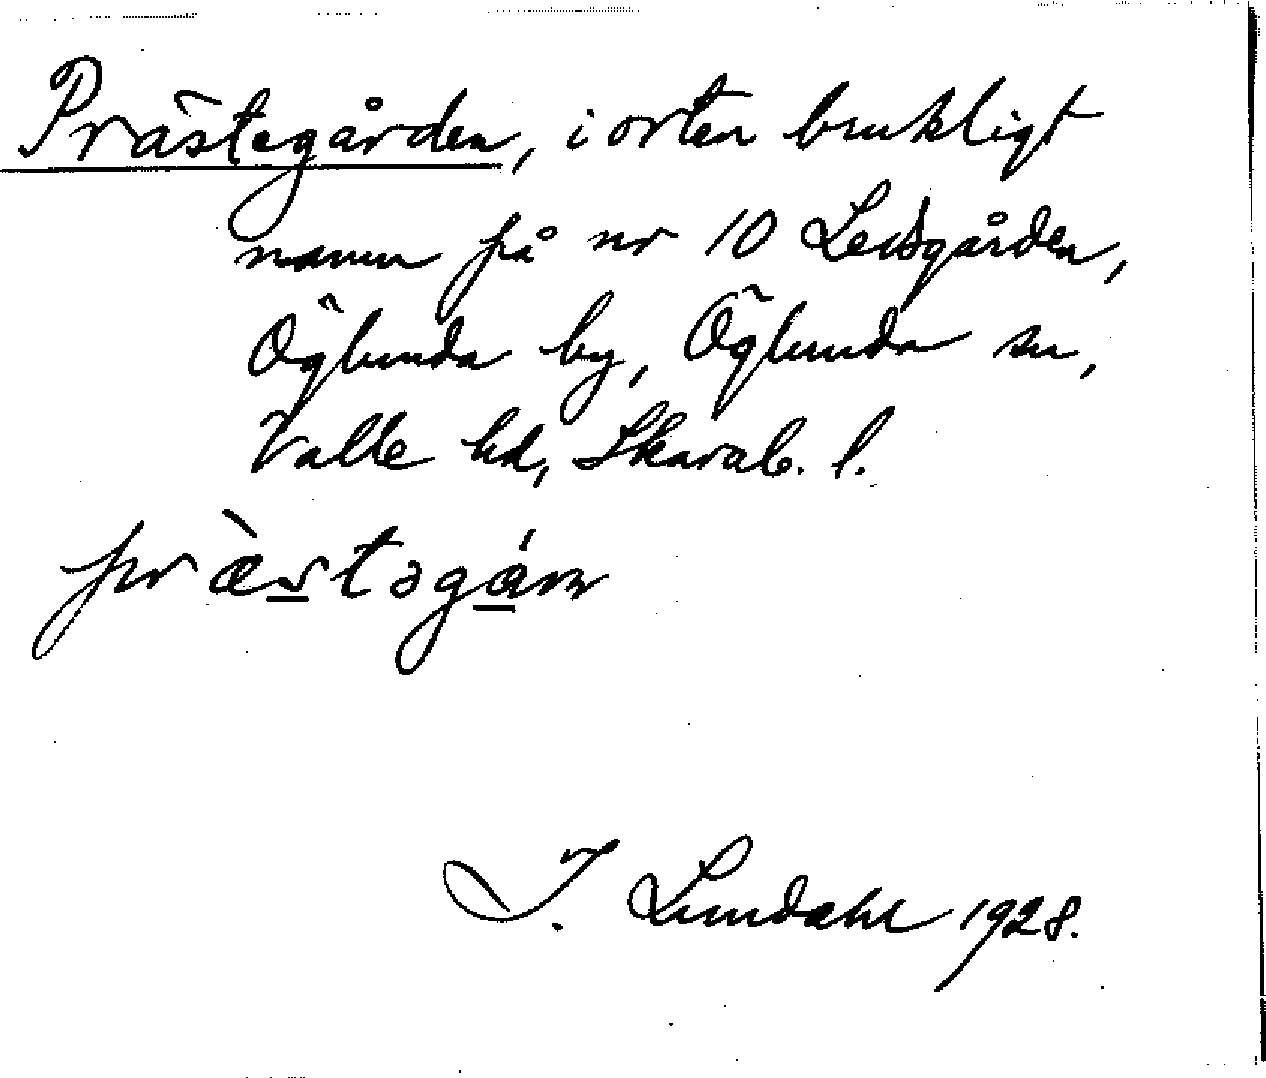 Prästegården, i orten brukligt
namn på nr 10 Ledsgården,
Öglunda by, Öglunda sn,
Valle hd, Skarab. l.
præ̀stəgán
I. Lundahl 1928.